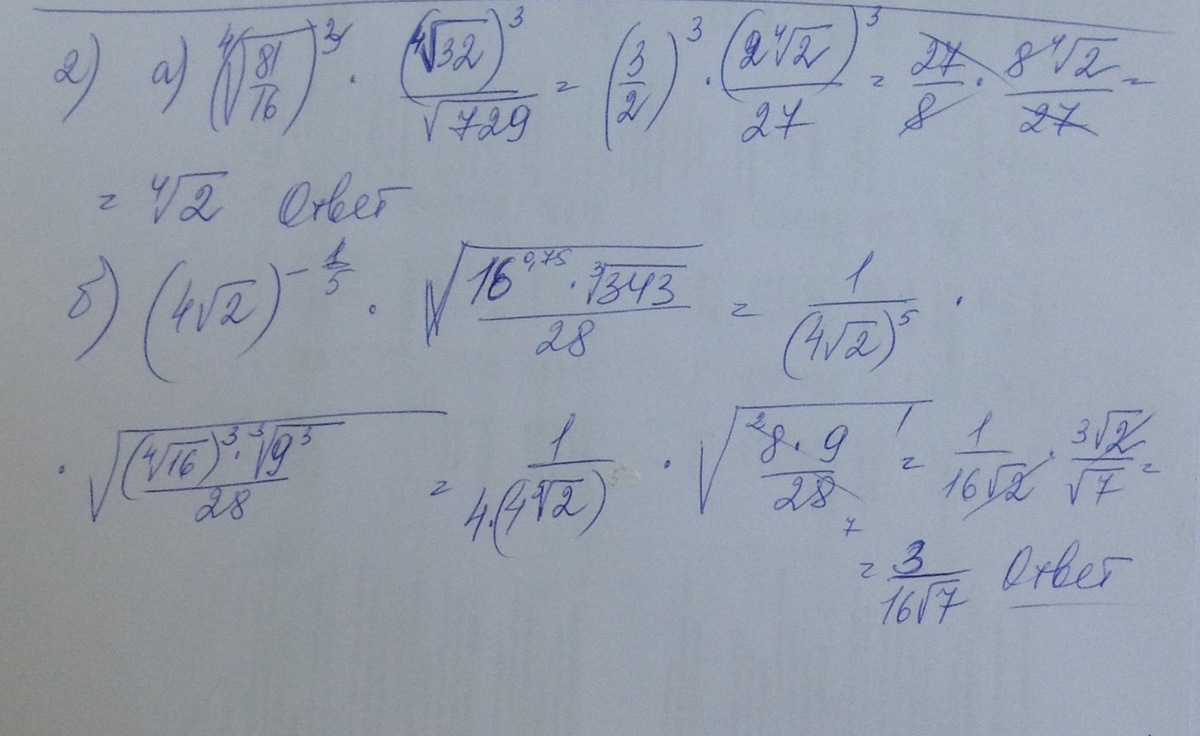 2) а) (∜(81/16))³ · (∜32)³/√729 = (3/2)³ · (2∜2)³/27 = 27/8 · 8∜2/27 =
= ∜2 Ответ
б) (4√2)^(-1/5) · √(16^0,75 · ∛343 / 28) = 1/(4√2)⁵ ·
· √((∜16)³ · ∛9³ / 28) = 1/(4·(4√2)) · √(8·9/28) = 1/(16√2) · 3√2/√7 =
= 3/(16√7) Ответ